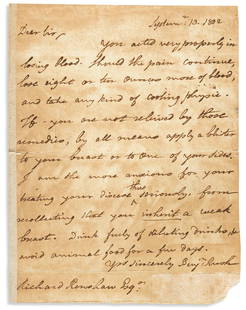 Septemr. 10. 1802
Dear Sir,
You acted very properly in
losing blood. Should the pain continue,
lose eight or ten ounces more of blood,
and take any kind of cooling physic.
If you are not relieved by those
remedies, by all means apply a blister
to your breast or to one of your sides.
I am the more anxious for your
treating your disease thus seriously, from
recollecting that you inherit a weak
breast. Drink freely of diluting drinks, &
avoid animal food for a few days.
Yrs Sincerely Benjn Rush
Richard Renshaw Esqr.